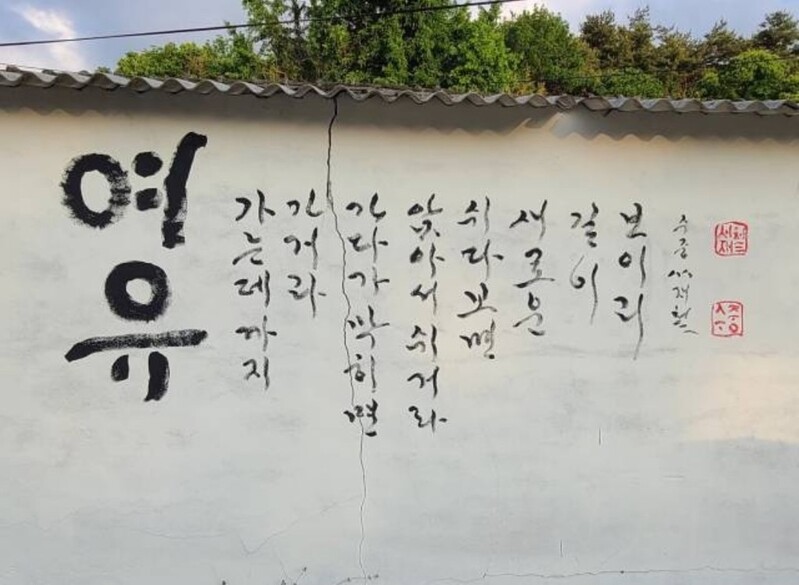 여유
가는데까지
가거라
가다가 막히면
앉아서 쉬거라
쉬다 보면
새로운
길이
보이리
수중
수중